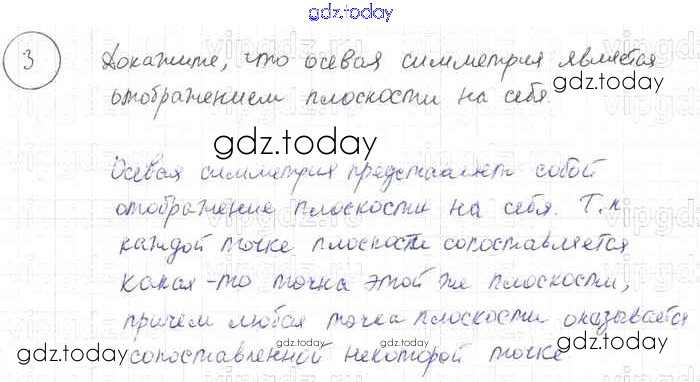 gdz.today
3 Докажите, что осевая симметрия является
отображением плоскости на себя.
gdz.today
gdz.today
Осевая симметрия представляет собой
отображение плоскости на себя. Т.к
каждой точке плоскости сопоставляется
какая-то точка этой же плоскости,
причем любая точка плоскости оказывается
gdz.today сопоставленной некоторой точке
gdz.today
gdz.today